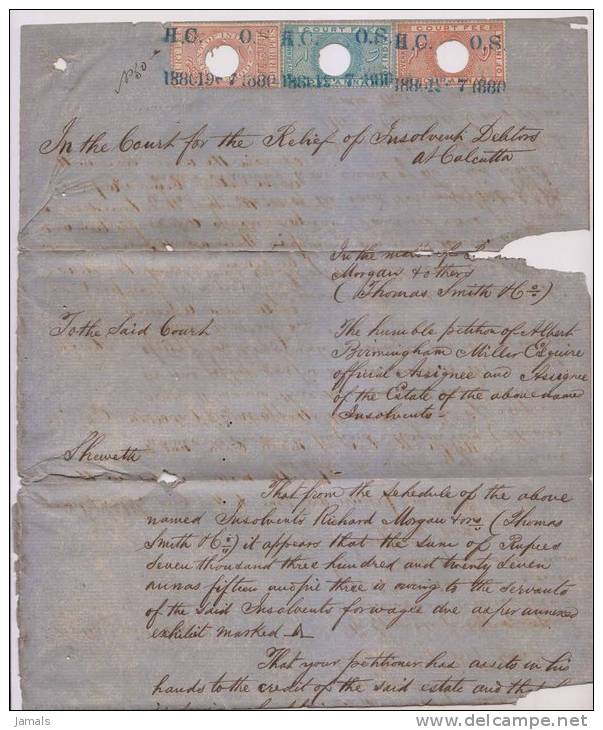 H.C. O.S
H.C. O.S
H.C. O.S
COURT FEE
COURT FEE
No 60
In the Court for the Relief of Insolvent Debtors
at Calcutta
In the matter of
Morgan & others
(Thomas Smith & Co)
To the Said Court
The humble petition of Albert
Birmingham Miller Esquire
official Assignee and Assignee
of the Estate of the above name
Insolvents -
Sheweth
That from the schedule of the above
named Insolvents Richard Morgan & ors (Thomas
Smith & Co) it appears that the sum of Rupees
Seven thousand three hundred and twenty seven
annas fifteen and pie three is owing to the servants
of the said Insolvents for wages due as per annexed
exhibit marked A
That your petitioner has assets in his
hands to the credit of the said estate and that
jamals
www.delcampe.net